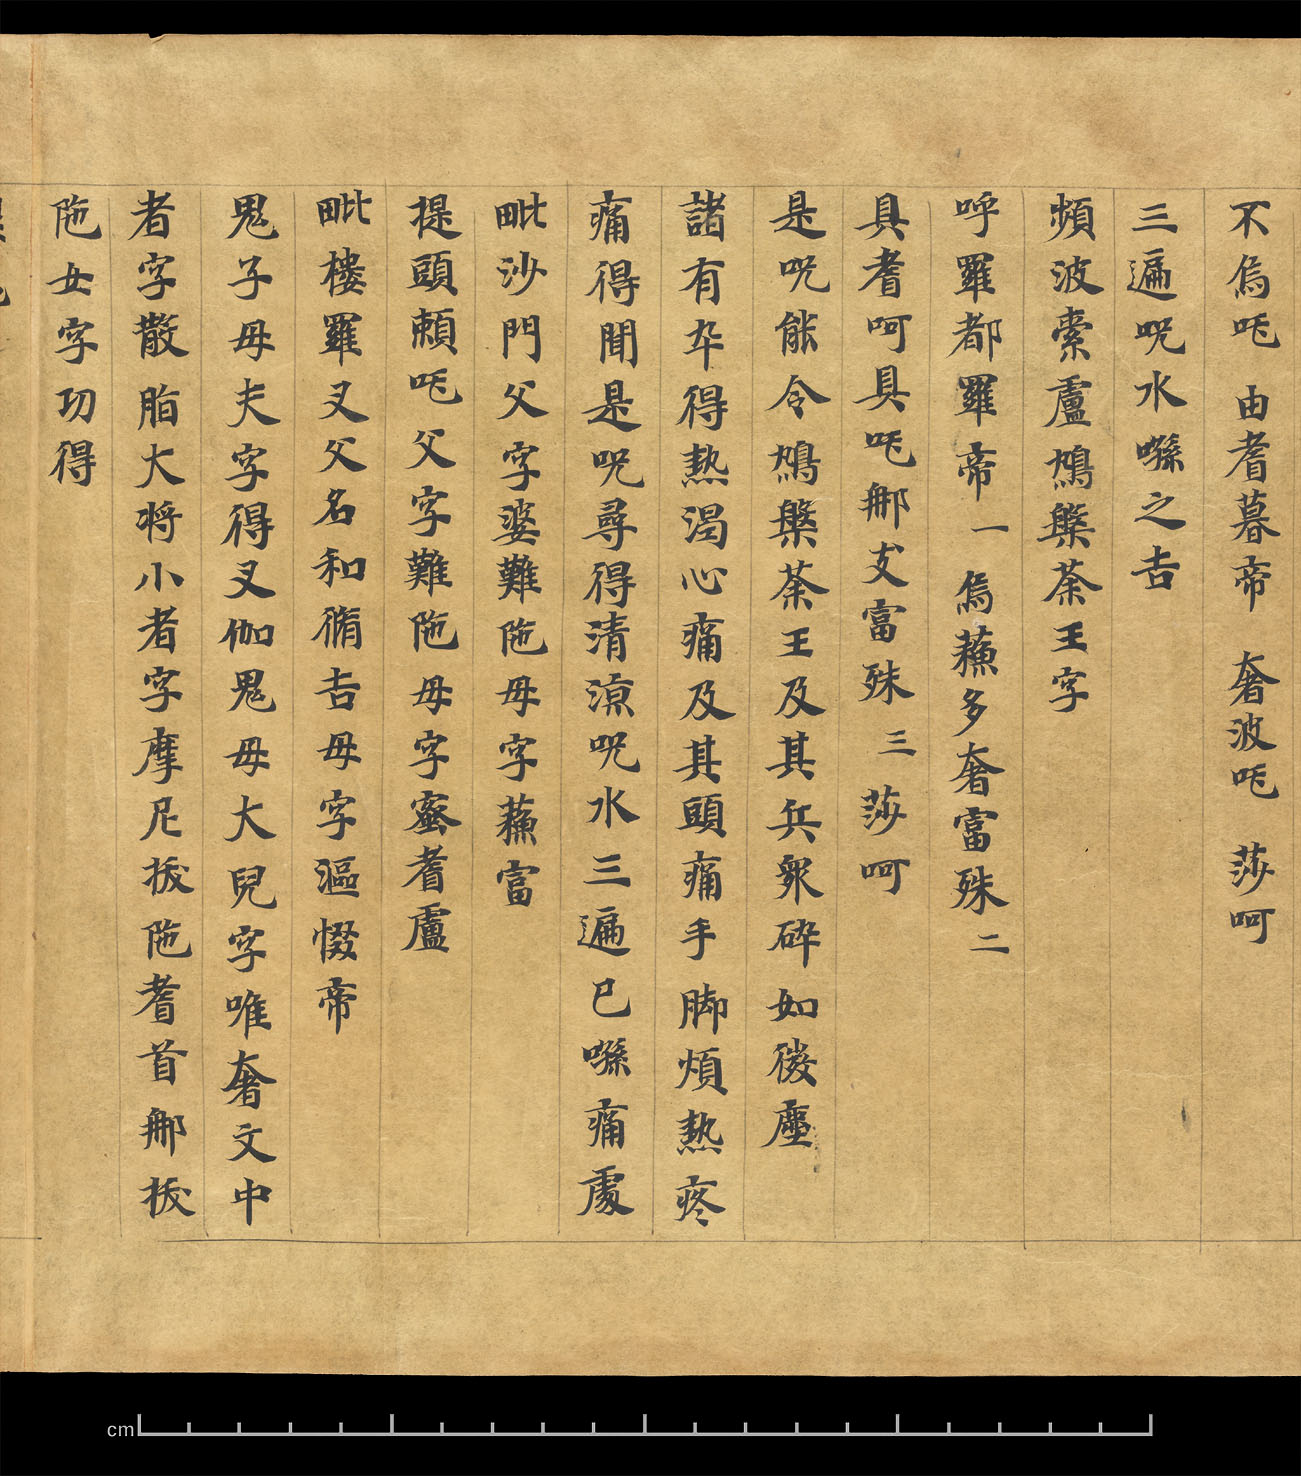 不烏吒 由耆暮帝 奢波吒 莎呵
三遍呪水噝之吉
頻波索盧鳩槃荼王字
呼羅都羅帝一 烏蘓多奢富殊二
具耆呵具吒那支富殊三 莎呵
是呪能令鳩槃荼王及其兵衆碎如微塵
諸有卒得熱渴心痛及其頭痛手脚煩熱疼
痛得聞是呪尋得清涼呪水三遍已噝痛處
毗沙門父字婆難陁母字蘓富
提頭頼吒父字難陁母字蜜耆盧
毗樓羅叉父名和脩吉母字漚惙帝
鬼子母夫字得叉伽鬼母大兒字唯奢文中
者字散脂大将小者字摩尼拔陁耆首那拔
陁女字功得